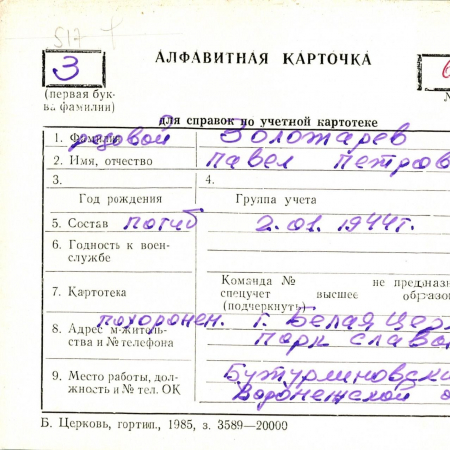 517
АЛФАВИТНАЯ КАРТОЧКА
З
(первая бук-
ва фамилии)
для справок по учетной картотеке
1. Фамилия рядовой Золотарев
2. Имя, отчество Павел Петров
3.
4.
Год рождения
Группа учета
5. Состав погиб 2.01.1944г.
6. Годность к воен-
службе
Команда № не предназн
7. Картотека спецучет высшее образов
(подчеркнуть)
похоронен. г. Белая Цер
8. Адрес м-житель-
ства и № телефона Парк Славы
9. Место работы, дол- Бутурлиновски
жность и № тел. ОК Воронежской о
Б. Церковь, гортип., 1985, з. 3589—20000